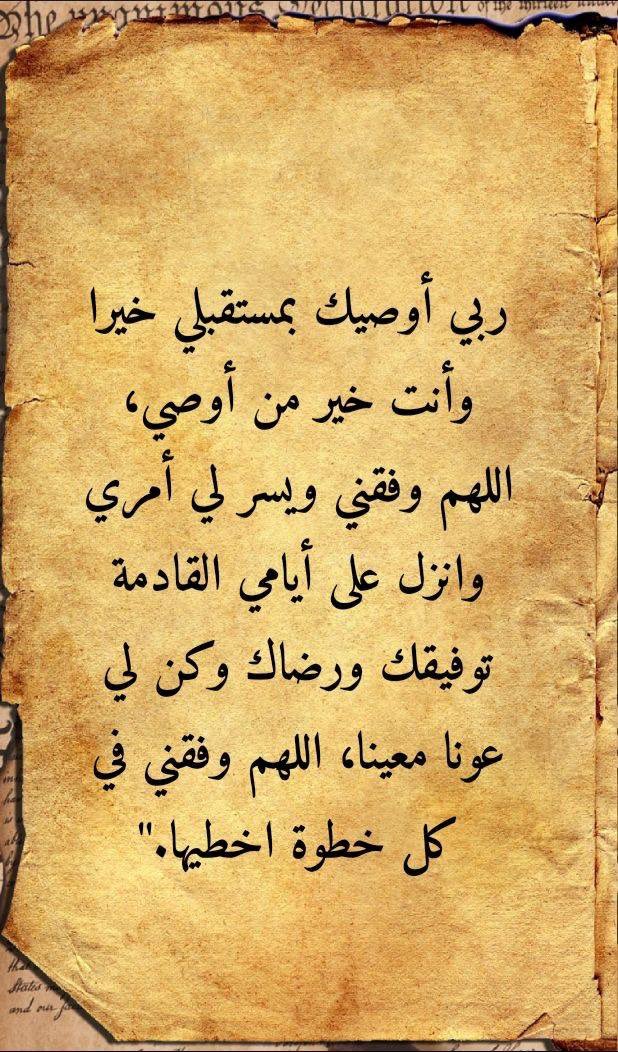 The unanimous Declaration of the thirteen united
ربي أوصيك بمستقبلي خيرا
وأنت خير من أوصي،
اللهم وفقني ويسر لي أمري
وانزل على أيامي القادمة
توفيقك ورضاك وكن لي
عونا معينا، اللهم وفقني في
كل خطوة اخطيها."
that
States
and our